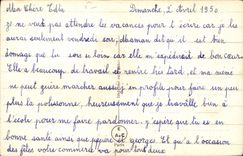 Ma Chère Edla Dimanche, 2 Avril 1950
je ne veux pas attendre les vacances pour t'écrire car je les
aurai seulement vendredi soir. Maman dit qu'il est bien
dommage que tu sois si loin car elle m'expédierait de bon cœur.
Elle a beaucoup de travail et rentre très tard, et ma mère
ne peut guère marcher aussi j'en profite pour faire un peu
plus la polissonne, heureusement que je travaille bien à
l'école pour me faire pardonner. J'espère que tu es en
bonne santé ainsi que Georges. Et qu'à l'occasion
des fêtes votre commerce va pour tout deux
A^te
Paris